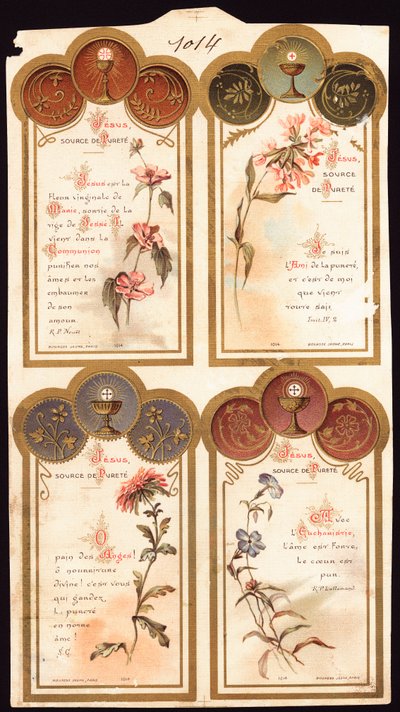 1014
Jésus,
SOURCE DE PURETÉ
Jésus est la
Fleur virginale de
Marie, sortie de la
tige de Jessé. Il
vient dans la
Communion
purifier nos
âmes et les
embaumer
de son
amour.
R.P. Nouët
BOUASSE JEUNE, PARIS 1014
Jésus,
SOURCE
DE PURETÉ
Je suis
l'Ami de la pureté,
et c'est de moi
que vient
toute sain
Imit. IV, 2
1014 BOUASSE JEUNE, PARIS
Jésus,
SOURCE DE PURETÉ
O
pain des Anges!
ô nourriture
divine! c'est vous
qui gardez
la pureté
en notre
âme!
S.G.
BOUASSE JEUNE, PARIS 1014
Jésus,
SOURCE DE PURETÉ
Avec
l'Eucharistie,
l'âme est forte,
Le cœur est
pur.
R.P. Lallemand
1014 BOUASSE JEUNE, PARIS